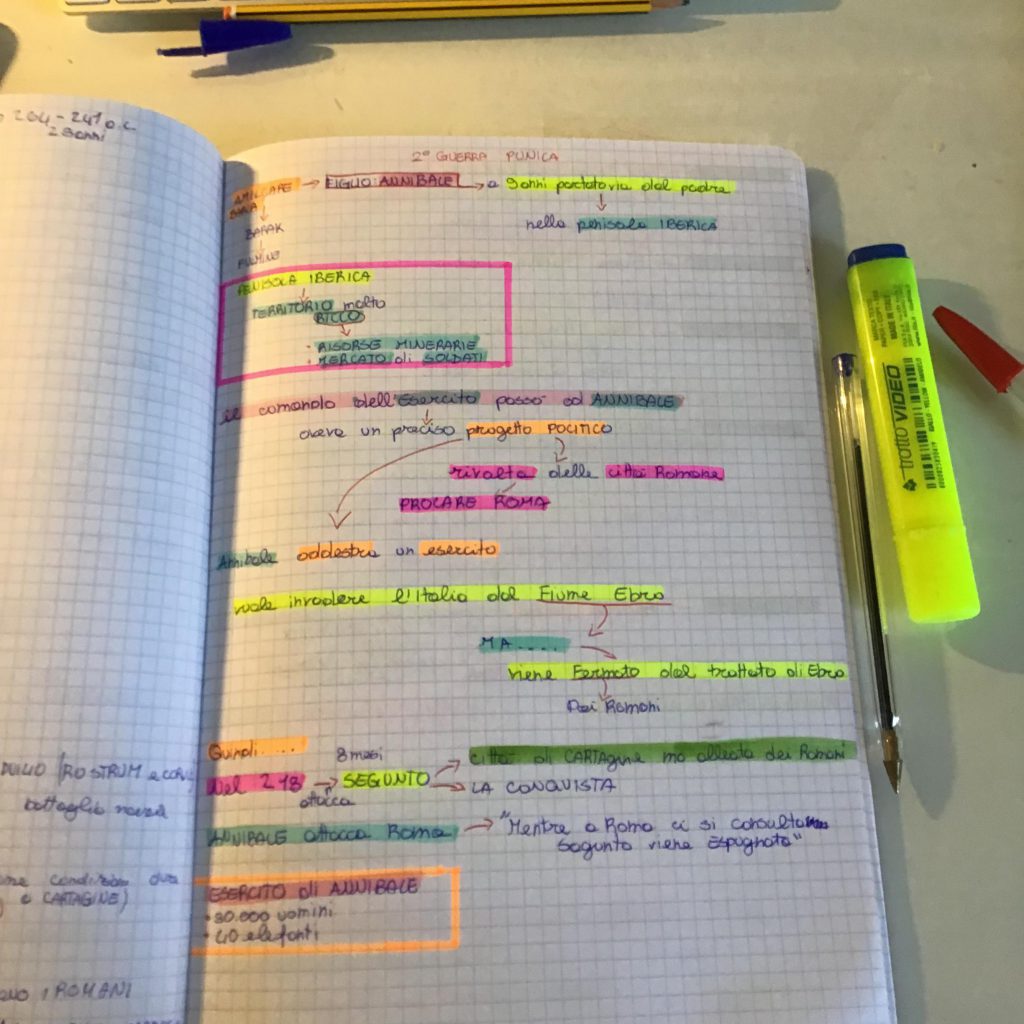 264-241 a.c
2ª GUERRA PUNICA
AMILCARE → FIGLIO: ANNIBALE → a 9 anni portato via dal padre
BARCA
nella penisola IBERICA
BARAK
FULMINE
PENISOLA IBERICA
TERRITORIO molto
RICCO
· RISORSE MINERARIE
· MERCATO di SOLDATI
il comando dell'Esercito passò ad ANNIBALE
aveva un preciso progetto POLITICO
rivolta delle città Romane
PROCARE ROMA
Annibale addestra un esercito
vuole invadere l'Italia dal Fiume Ebro
MA....
viene Fermato dal trattato di Ebro
Dai Romani
Quindi.....
8 mesi
città di CARTAgine ma alleata dei Romani
Nel 218 → SEGUNTO
attacca
LA CONQUISTA
ANNIBALE attacca Roma → "Mentre a Roma ci si consulta
Sagunto viene Espugnata"
ESERCITO di ANNIBALE
40 elefanti
DUILIO (ROSTRUM e
battaglia navale
condizioni
CARTAGINE)
I ROMANI
trotto VIDEO
MADE IN ITALY